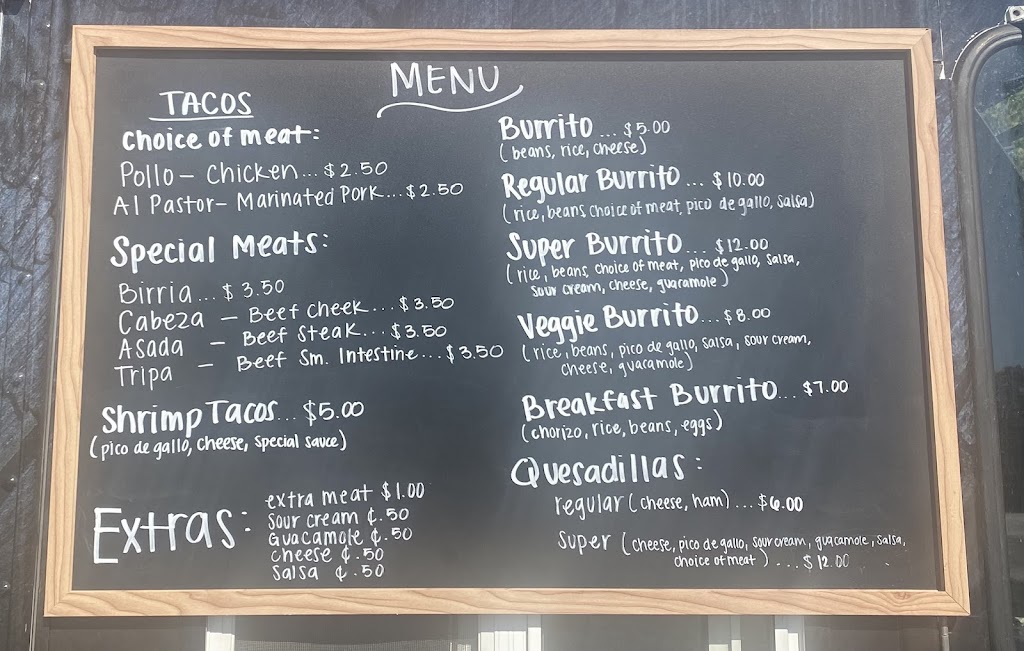 MENU
TACOS
Choice of meat:
Pollo - Chicken... $2.50
Al Pastor - Marinated Pork... $2.50
Special Meats:
Birria... $3.50
Cabeza - Beef cheek... $3.50
Asada - Beef Steak... $3.50
Tripa - Beef Sm. Intestine... $3.50
Shrimp Tacos... $5.00
(pico de gallo, cheese, special sauce)
Extras:
extra meat $1.00
Sour cream ¢.50
Guacamole ¢.50
Cheese ¢.50
Salsa ¢.50
Burrito... $5.00
(beans, rice, cheese)
Regular Burrito... $10.00
(rice, beans, choice of meat, pico de gallo, salsa)
Super Burrito... $12.00
(rice, beans, choice of meat, pico de gallo, salsa,
sour cream, cheese, guacamole)
Veggie Burrito... $8.00
(rice, beans, pico de gallo, salsa, sour cream,
cheese, guacamole)
Breakfast Burrito... $7.00
(chorizo, rice, beans, eggs)
Quesadillas:
regular (cheese, ham)... $6.00
super (cheese, pico de gallo, sour cream, guacamole, salsa,
choice of meat)... $12.00